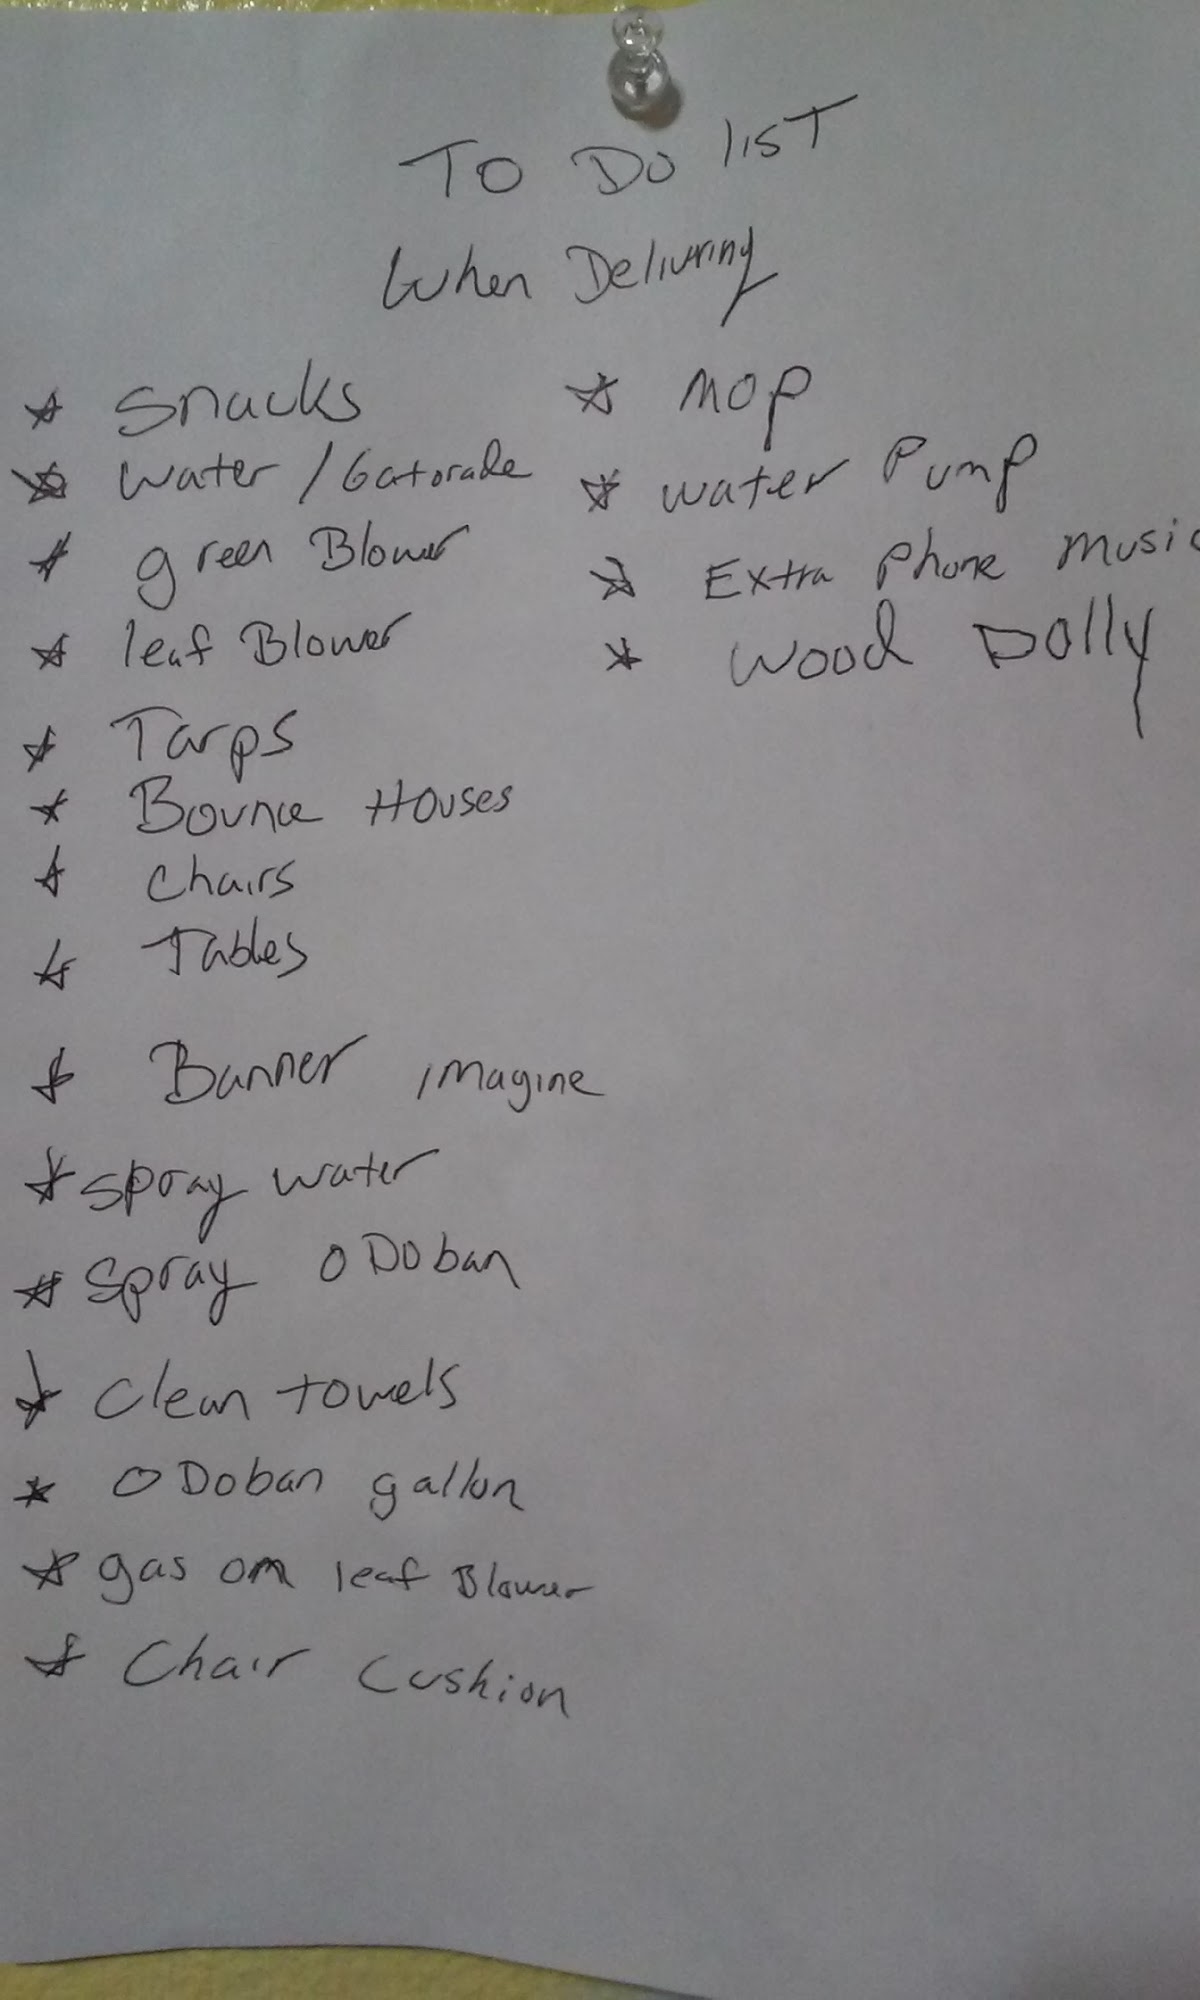 TO DO lIST
When Delivring
* Snacks
* Water / Gatorade
* green Blower
* leaf Blower
* Tarps
* Bounce Houses
* Chairs
* Tables
* Banner imagine
* Spray water
* Spray ODoban
* Clean towels
* ODoban gallon
* gas on leaf Blower
* Chair Cushion
* MOP
* water Pump
* Extra Phone Music
* Wood Dolly